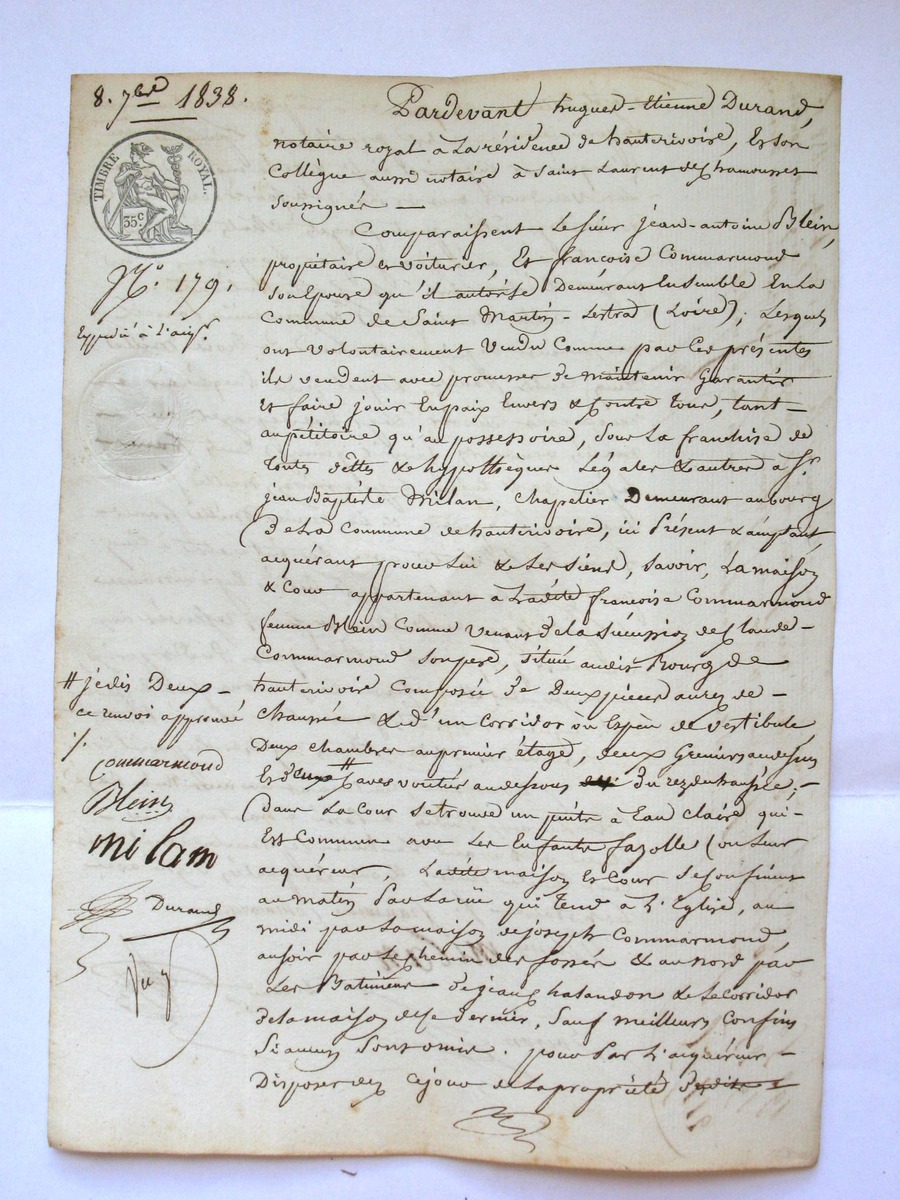 8. 7bre 1838.
TIMBRE ROYAL.
35c
No. 179.
Expedié à l'acqr.
Pardevant hugues-etienne Durand,
notaire royal à la résidence de hauterivoire, et son
Collègue aussi notaire à Saint Laurent de Chamousset
soussignés —
Comparaissent le sieur jean-antoine Blein,
propriétaire et voiturier, Et françoise Commarmond
son Epouse qu'il autorise Demeurant Ensemble En la
Commune de Saint Martin-Lestrad (Loire); Lesquels
ont volontairement vendu Comme par Ces présentes
ils vendent avec promesse de maintenir garantir
Et faire jouir En paix Envers & Contre tous, tant
au pétitoire qu'au possessoire, sous la franchise de
toutes dettes & hypothèques Légales & autres à Sr.
jean Baptiste Milan, Chapelier Demeurant au bourg
De La Commune de hauterivoire, ici Présent & acceptant,
acquérant pour Lui & les siens, savoir, La maison
& Cour appartenant à Ladite françoise Commarmond
femme Blein Comme venant de la succession de Claude
Commarmond son père, située audit Bourg de
hauterivoire composée de Deux pièces au rez de-
chaussée & d'un corridor ou Espèce de vestibule
Deux chambres au premier étage, deux Greniers au dessus
Et deux # caves voutées au dessous du rez de chaussée;-
Dans La Cour se trouve un puits à Eau Claire qui-
Est Commun avec Les Enfants fazolle (ou leur
acquéreur, Ladite maison Et Cour se Confinent
au matin Par La rue qui tend à L'Eglise, au
midi par La maison de joseph Commarmond,
au soir par Le chemin des fossés & au nord par
Les Batiments de jean Chalandon & Le Corridor
de la maison de Ce dernier, sauf meilleurs Confins
Si aucun sont omis. pour Par L'acquéreur-
Disposer dès Ce jour de La propriété
# je dis Deux -
ce renvoi approuvé
./.
Commarmond
Blein
milam
Durand